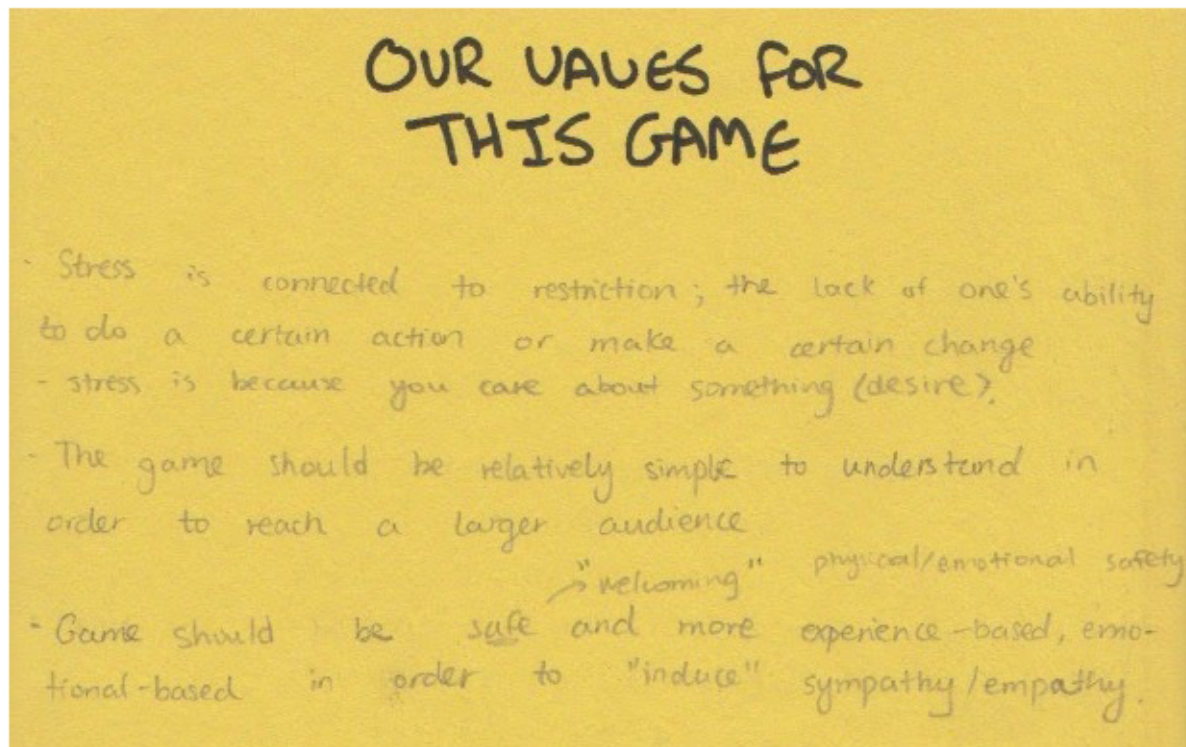 OUR VAUES FOR
THIS GAME
- Stress is connected to restriction; the lack of one's ability
to do a certain action or make a certain change
- stress is because you care about something (desire).
- The game should be relatively simple to understand in
order to reach a larger audience
"welcoming" physical/emotional safety
- Game should be safe and more experience-based, emo-
tional-based in order to "induce" sympathy/empathy.